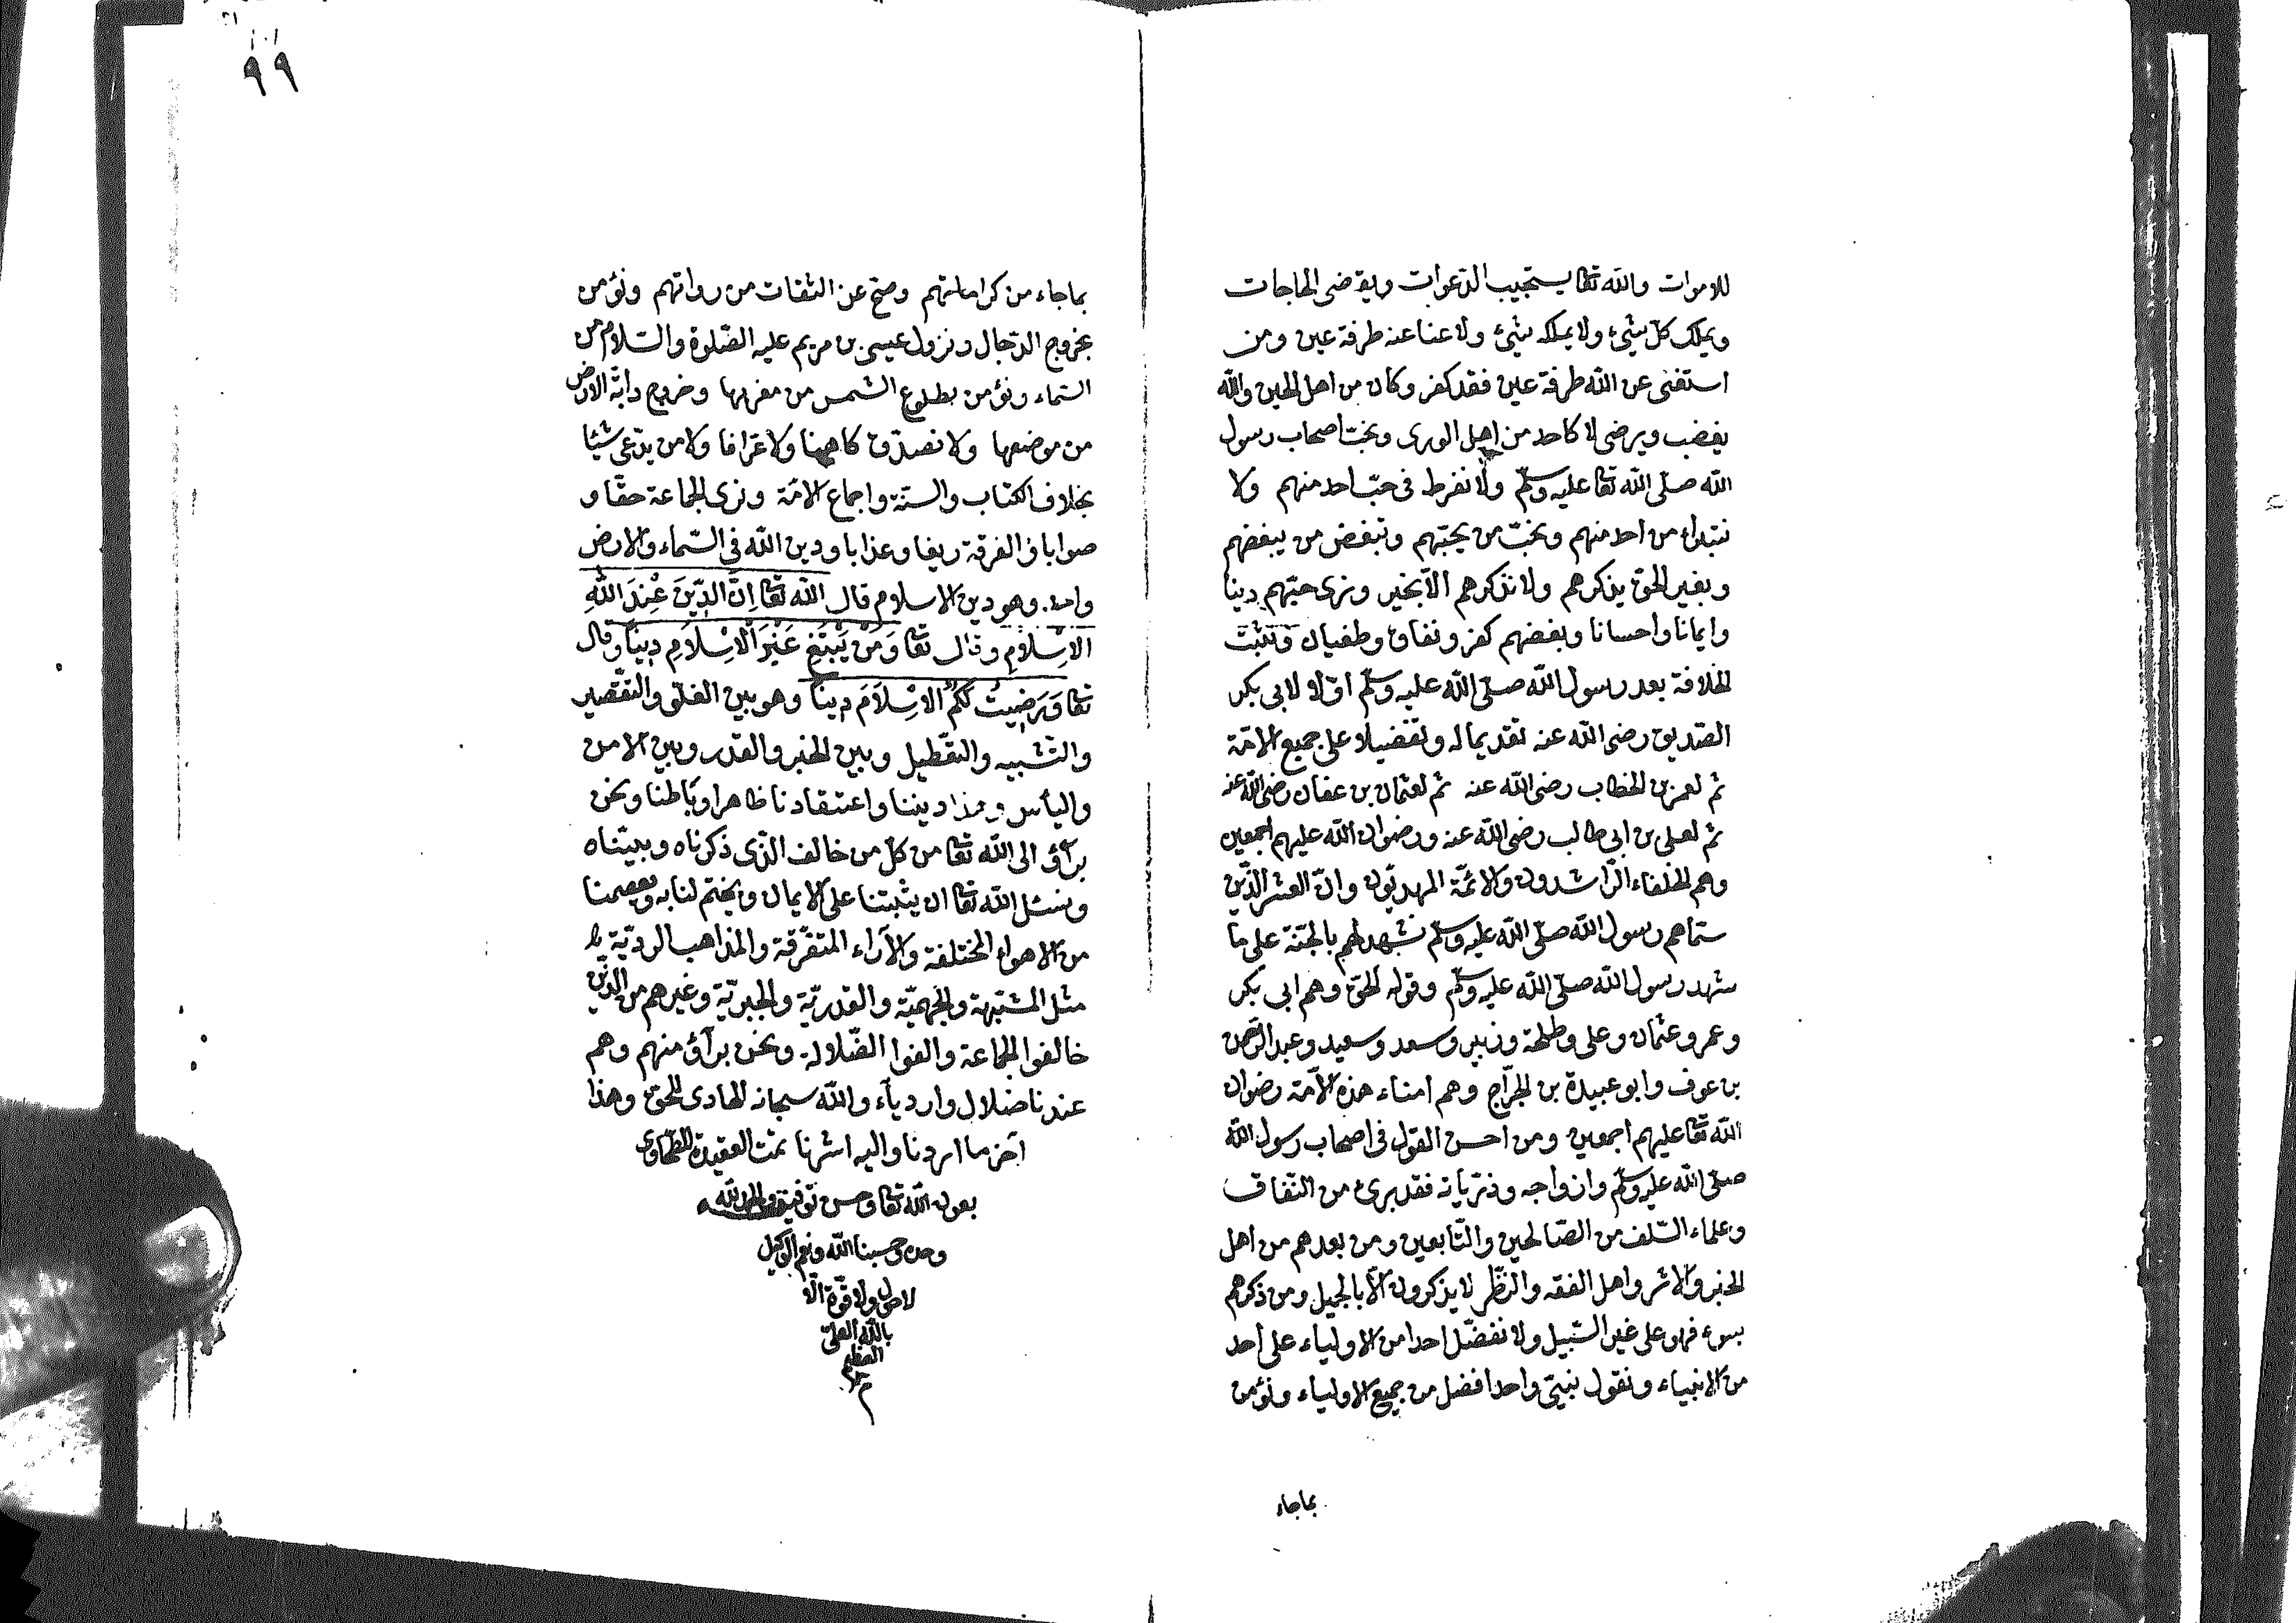 للاموات والله تعا يستجيب الدّعوات ويقضى الحاجات
ويملك كلّ شيئ ولا يملكه شيئ ولا عنا عنه طرفة عين ومن
استغنى عن الله طرفة عين فقد كفر وكان من اهل الحين والله
يغضب ويرضى لا كاحد من اهل الورى ونحبّ اصحاب رسول
الله صلّى الله تعا عليه وسلّم ولا نفرط فى حبّ احد منهم ولا
نتبراء من احد منهم ونحبّ من يحبّهم ونبغض من يبغضهم
وبغير الحقّ يذكرهم ولا نذكرهم الاّ بخير ونرى حبّهم دينا
وايمانا واحسانا وبغضهم كفر ونفاق وطغيان ونثبت
الخلافة بعد رسول الله صلّى الله عليه وسلّم اوّلا لابى بكر
الصّديق رضى الله عنه تقديما له وتفضيلا على جميع الامّة
ثم لعمر بن الخطاب رضى الله عنه ثم لعثمان بن عفان رضى الله عنه
ثم لعلى بن ابى طالب رضى الله عنه ورضوان الله عليهم اجمعين
وهم الخلفاء الرّاشدون والائمّة المهديّون وانّ العشر الذّين
سمّاهم رسول الله صلّى الله عليه وسلّم نشهد لهم بالجنّة على ما
شهد رسول الله صلّى الله عليه وسلّم وقوله الحقّ وهم ابى بكر
وعمر وعثمان وعلى وطلحة وزبير وسعد وسعيد وعبد الرّحمن
بن عوف وابو عبيدة بن الجرّاح وهم امناء هذه الامّة رضوان
الله تعا عليهم اجمعين ومن احسن القول فى اصحاب رسول الله
صلّى الله عليه وسلّم وازواجه وذرّياته فقد برئ من النّفاق
وعلماء السّلف من الصّالحين والتّابعين ومن بعدهم من اهل
الخبر والاثر واهل الفقه والنّظر لا يذكرون الاّ بالجميل ومن ذكرهم
بسوء فهو على غير السّبيل ولا نفضّل احدا من الاولياء على احد
من الانبياء ونقول بنبىّ واحد افضل من جميع الاولياء ونؤمن
بماجاء
٩٩
بماجاء من كراماتهم وصحّ عن الثقات من رواتهم ونؤمن
بخروج الدّجال ونزول عيسى بن مريم عليه الصّلوة والسّلام من
السّماء ونؤمن بطلوع الشمس من مغربها وخروج دابّة الارض
من موضعها ولا نصدّق كاهنا ولا عرّافا ولا من يدّعى شيئا
بخلاف الكتاب والسنّة واجماع الامّة ونرى الجماعة حقّا و
صوابا والفرقة زيغا وعذابا ودين الله فى السّماء والارض
واحد وهو دين الاسلام قال الله تعا اِنَّ الدّينَ عِنْدَ اللّهِ
الاِسْلامِ وقال تعا وَمَنْ يَبْتَغِ غَيْرَ الْاِسْلَامِ دِيناً وقال
تعا وَرَضِيتُ لَكُمُ الاِسْلَامَ دِيناً وهو بين الغلوّ والتقصير
والتّشبيه والتعطيل وبين الجبر والقدر وبين الامن
واليأس وهذا ديننا واعتقادنا ظاهرا وباطنا ونحن
برآؤ الى الله تعا من كلّ من خالف الذّى ذكرناه وبيّناه
ونسئل الله تعا ان يثبتنا على الايمان ويختم لنا به ويعصمنا
من الاهواء المختلفة والآراء المتفرّقة والمذاهب الرديّة
مثل المشبّهة والجهميّة والقدريّة والجبريّة وغيرهم من الذّين
خالفوا الجماعة والفوا الضّلالة ونحن برآؤ منهم وهم
عندنا ضلال واردياء والله سبحانه الهادى للحقّ وهذا
آخر ما اردنا واليه اشرنا تمّت العقيدة الطّحاوى
بعون الله تعا وحسن توفيقه والحمد لله
وحده وحسبنا الله ونعم الوكيل
لا حول ولا قوّة الّا
بالله العلىّ
العظيم
م